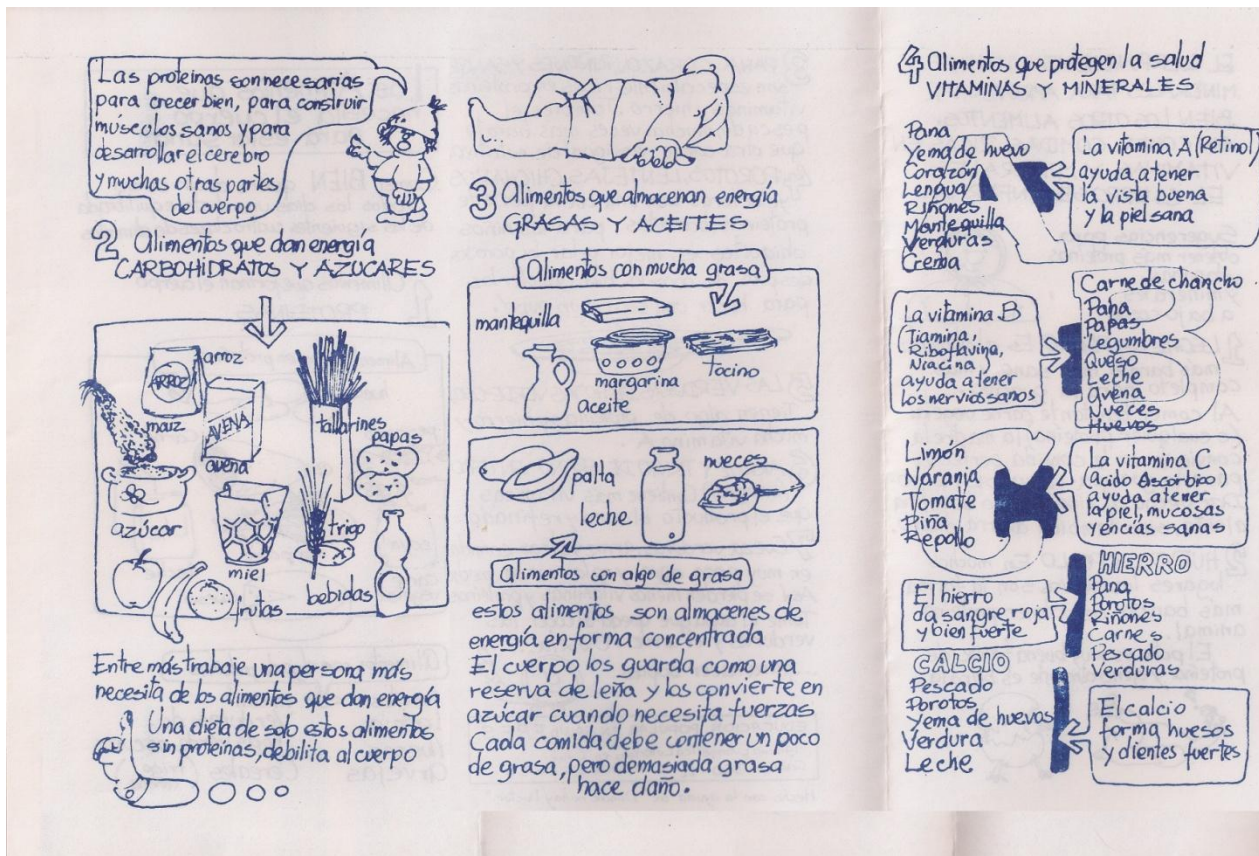 Las proteinas son necesarias
para crecer bien, para construir
músculos sanos y para
desarrollar el cerebro
y muchas otras partes
del cuerpo
2 Alimentos que dan energía
CARBOHIDRATOS Y AZUCARES
arroz
ARROZ
maíz
AVENA
avena
tallarines
papas
azúcar
miel
trigo
frutas
bebidas
Entre más trabaje una persona más
necesita de los alimentos que dan energía
Una dieta de solo estos alimentos
sin proteínas, debilita al cuerpo
3 Alimentos que almacenan energía
GRASAS Y ACEITES
Alimentos con mucha grasa
mantequilla
margarina
tocino
aceite
palta
leche
nueces
Alimentos con algo de grasa
estos alimentos son almacenes de
energía en forma concentrada
El cuerpo los guarda como una
reserva de leña y los convierte en
azúcar cuando necesita fuerzas
Cada comida debe contener un poco
de grasa, pero demasiada grasa
hace daño.
4 Alimentos que protegen la salud
VITAMINAS Y MINERALES
Pana
Yema de huevo
Corazón
Lengua
Riñones
Mantequilla
Verduras
Crema
A
La vitamina A (Retinol)
ayuda a tener
la vista buena
y la piel sana
La vitamina B
(Tiamina,
Riboflavina,
Niacina,
ayuda a tener
los nervios sanos
B
Carne de chancho
Pana
Papas
Legumbres
Queso
Leche
Avena
Nueces
Huevos
Limón
Naranja
Tomate
Piña
Repollo
C
La vitamina C
(Acido Ascorbico)
ayuda a tener
la piel, mucosas
y encías sanas
El hierro
da sangre roja
y bien fuerte
HIERRO
Pana
Porotos
Riñones
Carnes
Pescado
Verduras
CALCIO
Pescado
Porotos
Yema de huevos
Verdura
Leche
El calcio
forma huesos
y dientes fuertes